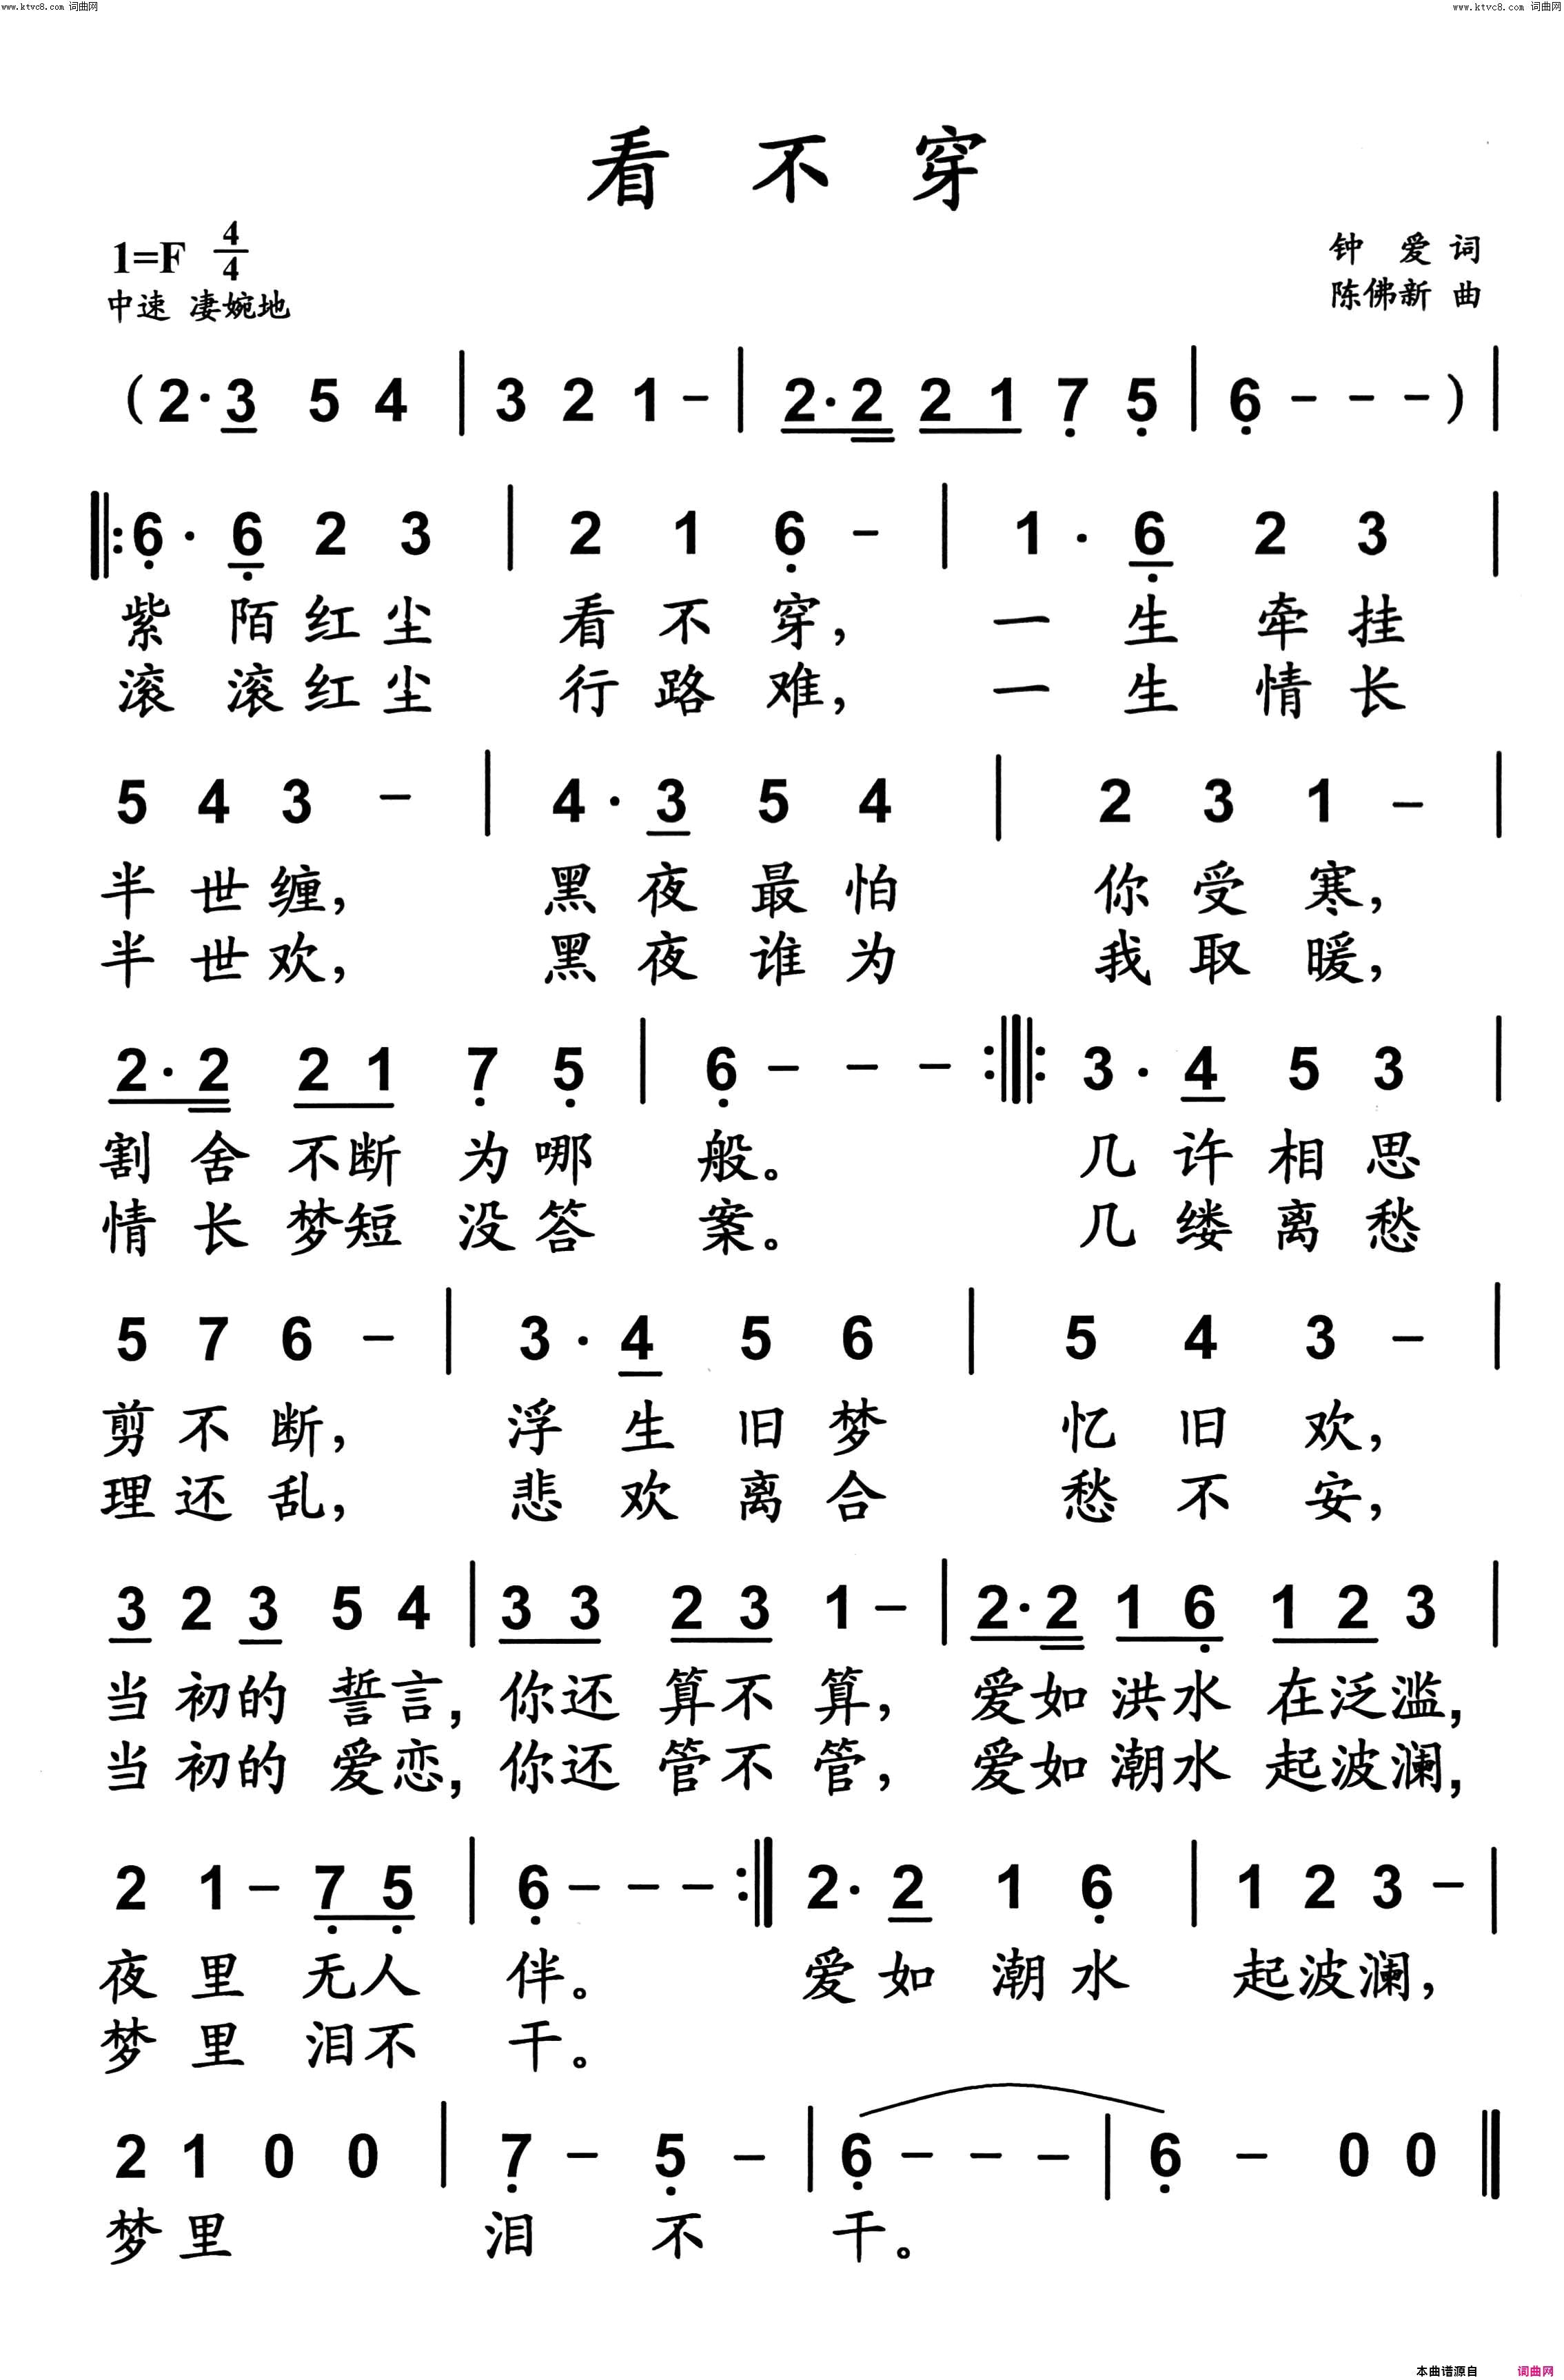 www.ktvc8.com 词曲网 www.ktvc8.com 词曲网
看 不 穿
1=F 4/4 钟 爱 词
中速 凄婉地 陈佛新 曲
(2·3 5 4 | 3 2 1 - | 2·2 2 1 7 5 | 6 - - - ) |
‖: 6· 6 2 3 | 2 1 6 - | 1· 6 2 3 |
紫 陌 红 尘 看 不 穿， 一 生 牵 挂
滚 滚 红 尘 行 路 难， 一 生 情 长
5 4 3 - | 4· 3 5 4 | 2 3 1 - |
半 世 缠， 黑 夜 最 怕 你 受 寒，
半 世 欢， 黑 夜 谁 为 我 取 暖，
2·2 2 1 7 5 | 6 - - - :‖: 3· 4 5 3 |
割 舍 不断 为 哪 般。 几 许 相 思
情 长 梦短 没 答 案。 几 缕 离 愁
5 7 6 - | 3· 4 5 6 | 5 4 3 - |
剪 不 断， 浮 生 旧 梦 忆 旧 欢，
理 还 乱， 悲 欢 离 合 愁 不 安，
3 2 3 5 4 | 3 3 2 3 1 - | 2·2 1 6 1 2 3 |
当 初的 誓言，你还 算不 算， 爱如 洪水 在泛滥，
当 初的 爱恋，你还 管不 管， 爱如 潮水 起波澜，
2 1 - 7 5 | 6 - - - :‖ 2· 2 1 6 | 1 2 3 - |
夜 里 无人 伴。 爱 如 潮 水 起波澜，
梦 里 泪不 干。
2 1 0 0 | 7 - 5 - | 6 - - - | 6 - 0 0 ‖
梦 里 泪 不 干。
本曲谱源自 词曲网